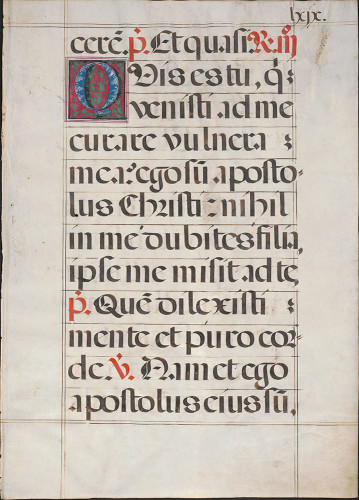 lxix.
cerē. p̄. Et quasi R. iiij
QVis es tu, q̇
venisti ad me
curare vulnera
mea? ego sū aposto-
lus Christi: nihil
in me dubites filia,
ipse me misit ad te,
p̄. Quē dilexisti
mente et puro cor-
de. V̄. Nam et ego
apostolus eius sū,